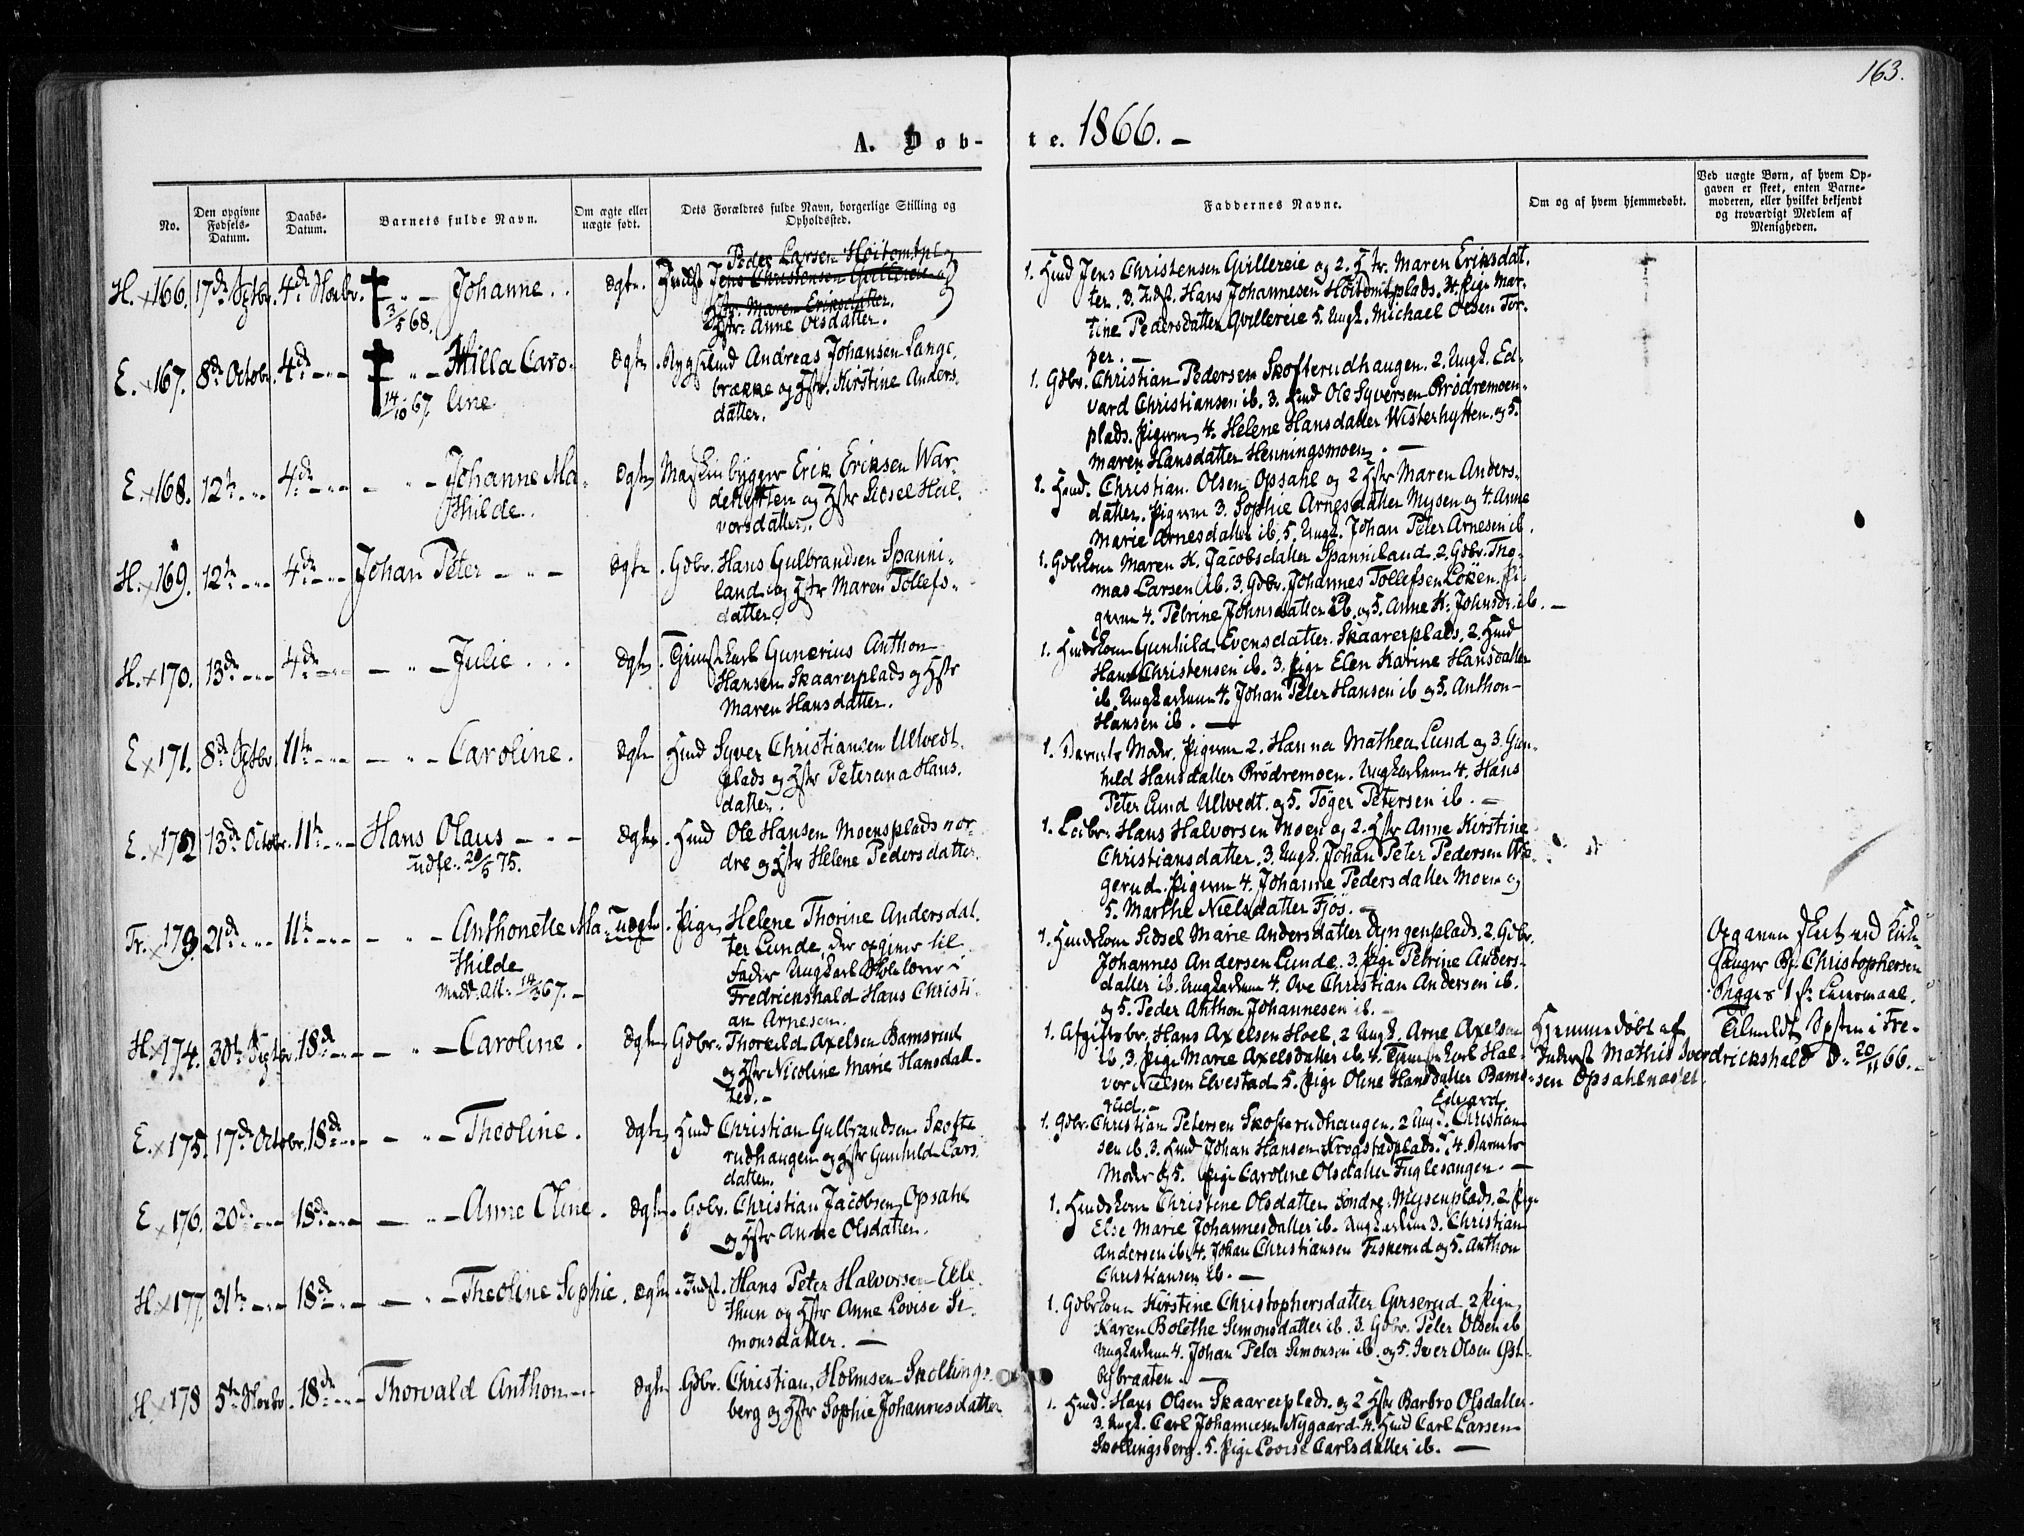 163.
A. Døb-
te. 1866. -
No.
Den opgivne Fødsels-Datum.
Daabs-Datum.
Barnets fulde Navn.
Om ægte eller uægte født.
Dets Forældres fulde Navn, borgerlige Stilling og Opholdssted.
Faddernes Navne.
Om og af hvem hjemmedøbt.
Ved uægte Børn, af hvem Op-
gaven er skeet, enten Barne-
moderen, eller hvilket bekjendt
og troværdigt Medlem af
Menigheden.
H. x 166. 17de Sptbr. 4de Novbr. Johanne. ægte.
3/5 68.
Peder Larsen Høitomtpl. og
Indst Jens Christensen Gvillereie og
Hstr. Maren Eriksdatter.
Hstr. Anne Olsdatter.
1. Hmd Jens Christensen Gvillereie og 2. Hstr. Maren Eriksdat-
ter. 3. Indst. Hans Johannesen Høitomtplads. 4. Pige Mar-
tine Pedersdatter Gvillereie 5. Ungk. Michael Olsen Tor-
per. -
E. x 167. 8de Octobr. 4de Milla Caro-
line
14/10 67.
ægte. Bygselmd Andreas Johansen Lange-
brække og Hstr. Kirstine Anders-
datter.
1. Gdbr. Christian Pedersen Skofterudhaugen. 2. Ungk. Ed-
vard Christiansen ib. 3. Hmd Ole Syversen Brødremoen-
plads. Pigerne 4. Helene Hansdatter Wisterhytten. og 5.
Maren Hansdatter Henningsmoen. -
E. x 168. 12te 4de Johanne Ma-
thilde.
ægte Maskinbygger Erik Eriksen War-
dehytten og Hstr Sidsel Hal-
vorsdatter.
1. Hmd. Christian Olsen Opsahl og 2 Hstr Maren Anders-
datter. Pigerne 3. Sophie Arnesdatter Mysen og 4. Anne
Marie Arnesdatter ib. 5. Ungk. Johan Peter Arnesen ib.
H. x 169. 12te 4de Johan Peter
ægte Gdbr. Hans Gulbrandsen Spanni-
land og Hstr Maren Tollefs-
datter.
1. Gdbrkone Maren K. Jacobsdatter Spanniland. 2. Gdbr. Tho-
mas Larsen ib. 3. Gdbr. Johannes Tollefsen Løken. Pi-
gerne 4. Petrine Johnsdatter ib. og 5. Anne K. Johnsdr. ib. -
H. x 170. 13de 4de Julie
ægte Tjenestkarl Gunerius Anthon
Hansen Skaarerplads og Hstr
Maren Hansdatter.
1. Hmdskone Gunhild Evensdatter Skaarerplads. 2. Hmd
Hans Christensen ib. 3. Pige Elen Karine Hansdatter
ib. Ungkarlene 4. Johan Peter Hansen ib og 5. Anthon
Hansen ib. -
E. x 171. 8de Sptbr. 11te Caroline.
ægte Hmd Syver Christiansen Ulvedt-
plads og Hstr Peterena Hans-
datter.
1. Barnets Moder. Pigerne 2. Hanna Mathea Lund og 3. Gun-
hild Hansdatter Brødremoen. Ungkarlene 4. Hans
Peter Lund Ulvedt. og 5. Tøger Petersen ib. -
E. x 172 13de Octobr. 11te Hans Olaus
udfl. 20/5 75.
ægte. Hmd Ole Hansen Moensplads nor-
dre og Hstr Helene Pedersdatter.
1. Leibr. Hans Halvorsen Moen og 2. Hstr Anne Kirstine
Christiansdatter. 3. Ungk. Johan Peter Pedersen Wæ-
gerud. Pigerne 4. Johanne Pedersdatter Moen og
5. Marthe Nielsdatter Fjøs. -
Tr. x 173. 21de 11te Anthonette Ma-
thilde
Medd. Att. 14/3 67. -
uægte. Pige Helene Thorine Andersdat-
ter Lunde, der opgiver til
Fader Ungkarl Skolelærer i
Fredrikshald Hans Christi-
an Arnesen.
1. Hmdskone Sidsel Marie Andersdatter Dyngenplads. 2. Gdbr.
Johannes Andersen Lunde. 3. Pige Petrine Anders-
datter ib. Ungkarlene 4. Ove Christian Andersen ib.
og 5. Peder Anthon Johannesen ib. -
Opgaven skeet ved Kirke-
sanger Christophersen
Begges 1ste Leiermaal.
Tilmeldt Spsten i Fre-
drickshald d. 20/11 66. -
H. x 174. 30te Sptbr. 18de Caroline.
ægte Gdbr. Thorkild Axelsen Bamsrud
og Hstr Nicoline Marie Hansdat-
ter. -
1. Afgiftsbr. Hans Axelsen Hoel. 2 Ungk. Arne Axelsen
ib. 3. Pige Marie Axelsdatter ib. 4. Tjenestkarl Hal-
vor Nielsen Elvestad 5. Pige Oline Hansdatter Bams-
rud. -
Hjemmedøbt af
Inderst Mathis Iver-
sen Opsahlnæset.
E. x 175. 17de Octobr. 18de Theoline.
ægte Hmd Christian Gulbrandsen Skofte-
rudhaugen og Hstr Gunhild Lars-
datter.
1. Gdbr. Christian Petersen Skofterudhaugen. 2 Ungk. Edvard Christian-
sen ib. 3. Hmd Johan Hansen Krogstadplads. 4. Barnets
Moder og 5. Pige Caroline Olsdatter Fuglesangen. -
E x 176. 20de 18de Anne Oline.
ægte. Gdbr. Christian Jacobsen Opsahl
og Hstr Anne Olsdatter.
1. Hmdskone Christine Olsdatter Søndre Mysenplads. 2 Pige
Else Marie Johannesdatter ib. Ungkarlene 3. Christian
Andersen ib. 4. Johan Christiansen Fiskerud og 5. Anthon
Christiansen ib. -
H. x 177. 31te 18de Theoline Sophie.
ægte. Indst. Hans Peter Halvorsen Elle-
thun og Hstr Anne Lovise Si-
monsdatter. -
1. Gdbrkone Kirstine Christophersdatter Gjrserud 2 Pige
Karen Bolethe Simonsdatter ib. 3. Gdbr. Peter Olsen ib
Ungkarlene 4. Johan Peter Simonsen ib. og 5. Iver Olsen Øst-
bybraaten. -
H. x 178 5te Novbr. 18de Thorvald Anthon
ægte. Gdbr. Christian Holmsen Skollings-
berg og Hstr Sophie Johannesdatter
1. Hmd. Hans Olsen Skaarerplads og 2 Hstr Barbro Olsdatter.
3. Ungk. Carl Johannesen Nygaard. 4. Hmd Carl Larsen
Skollingsberg. 5. Pige Lovise Carlsdatter ib. -